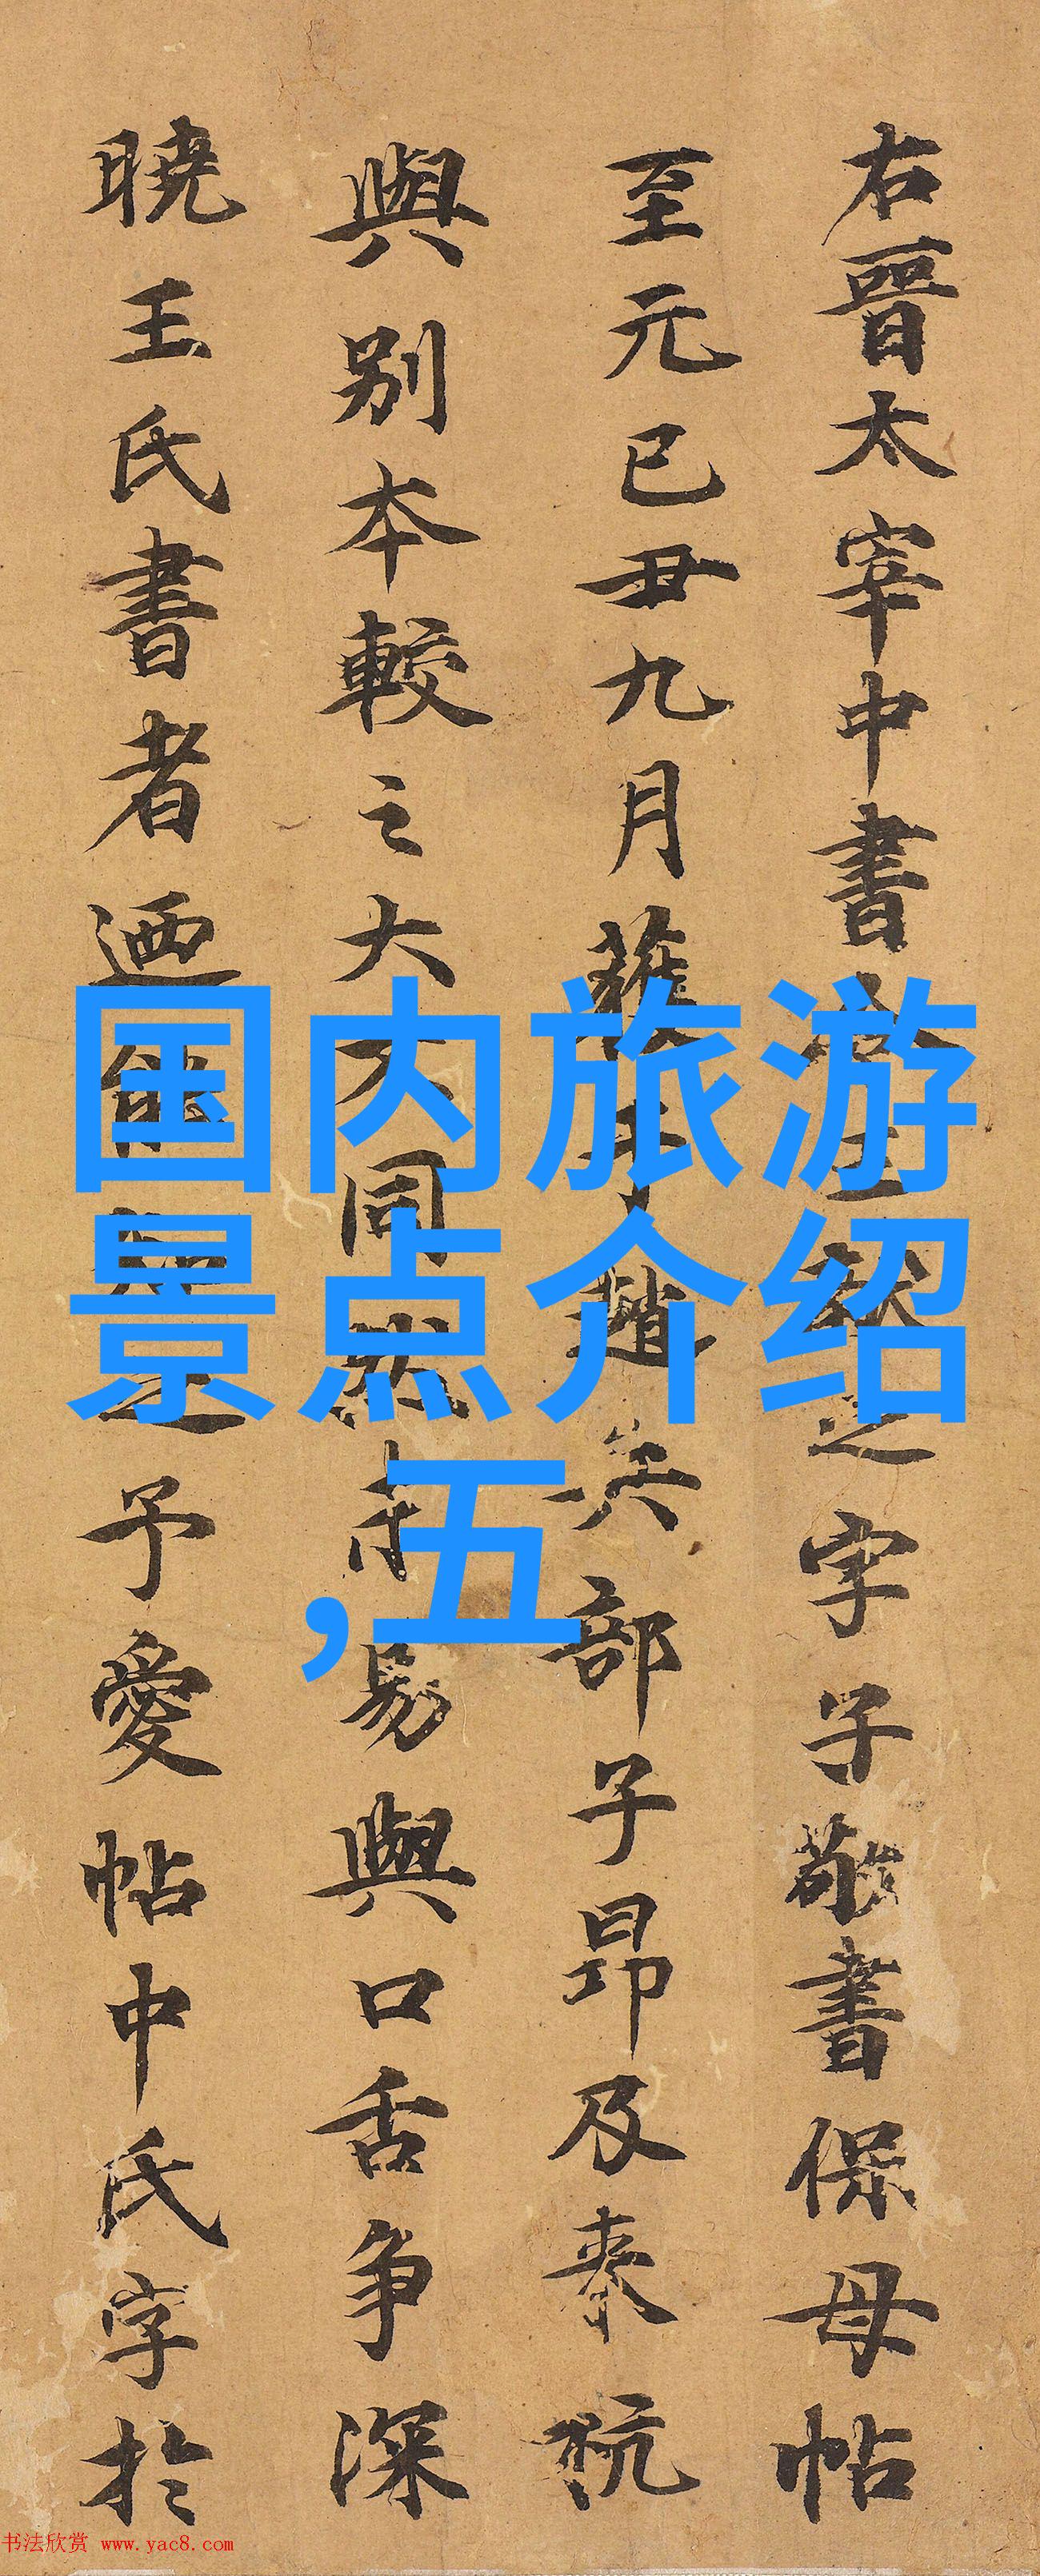 右晉太宰中書之字子敬書保母帖
至元己丑九月于趙兵部子昂及來杭
與別本較之大不同然未易與口舌争深
曉王氏書者迺能之予愛帖中氏字於
国内旅游
景点介绍
,五
书法欣赏 www.yac8.com